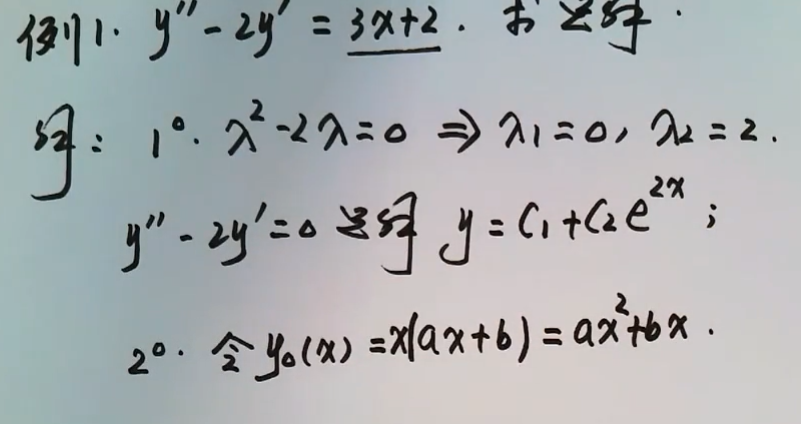 例1. y″-2y′=3x+2. 求通解.
解: 1°. λ²-2λ=0 ⇒ λ₁=0, λ₂=2.
y″-2y′=0 通解 y=C₁+C₂e²ˣ;
2°. 令 y₀(x)=x(ax+b)=ax²+bx.